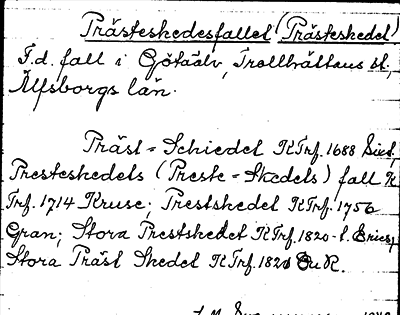 Prästeskedesfallet (Prästeskedet)
F.d. fall i Götaälv, Trollhättans st.,
Älfsborgs län.
Präst=Schiedet KTrf. 1688
Presteskedels (Preste=Skedels) fall K
Trf. 1714 Kruse; Prestskedet KTrf. 1756
Gran; Stora Prestskedet KTrf. 1820-t. Erics,
Stora Präst Skedet KTrf. 1820